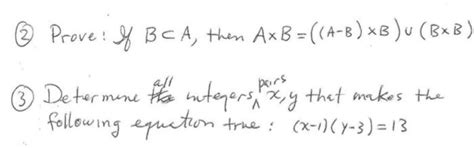 ② Prove: If B ⊂ A, then A×B = ((A-B)×B) ∪ (B×B)
③ Determine all integers pairs x, y that makes the
following equation true: (x-1)(y-3)=13